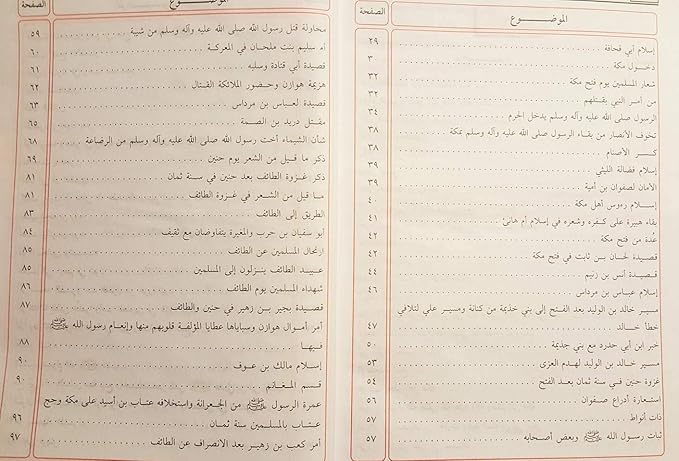 الموضـــوع
الصفحة
إسلام أبي قحافة ٢٩
دخـول مكة ٣٠
شعار المسلمين يوم فتح مكة ٣٢
من أمـر النبي بقتلهم ٣٢
الرسول صلى الله عليه وآله وسلم يدخل الحرم ٣٤
تخوف الأنصار من بقاء الرسول صلى الله عليه وآله وسلم بمكة ٣٨
كـسر الأصنام ٣٨
إسلام فضالة الليثي ٣٩
الأمان لصفوان بن أمية ٣٩
إسـلام رءوس أهل مكة ٤٠
بقاء هبيرة على كفره وشعره في إسلام أم هانئ ٤١
عُدة من فتح مكة ٤٢
قصيدة لحسان بـن ثابت في فتح مكة ٤٢
قصيدة أنس بن زنيم ٤٤
إسلام عباس بن مرداس ٤٦
مسير خالد بن الوليد بعد الفتح إلى بني جذيمة من كنانة ومسير علي لتلافي
خطأ خالد ٤٧
خبر ابن أبي حدرد مع بني جذيمة ٥٠
مسير خالد بن الوليد لهدم العزى ٥٣
غزوة حنين في سنة ثمان بعد الفتح ٥٤
استعارة أدراع صفوان ٥٦
ذات أنواط ٥٧
ثبات رسول الله ﷺ وبعض أصحابه ٥٧
الموضـــوع
الصفحة
محاولة قتل رسول الله صلى الله عليه وآله وسلم من شيبة ٥٩
أم سليم بنت ملحان في المعركة ٦٠
قصيدة أبي قتادة وسلبه ٦١
هزيمة هوازن وحضور الملائكة القتال ٦٢
قصيدة لعباس بن مرداس ٦٣
مقـتل دريد بن الصـمة ٦٥
شأن الشيماء أخت رسول الله صلى الله عليه وآله وسلم من الرضاعة ٦٨
ذكر ما قيل من الشعر يوم حنين ٦٩
ذكر غـزوة الطائف بعد حنين في سنة ثمان ٨١
ما قيل من الشعر في غزوة الطائف ٨١
الطريق إلى الطائف ٨٣
أبو سفيان بن حرب والمغيرة يتفاوضان مع ثقيف ٨٤
ارتحال المسلمين عن الطائف ٨٥
عبيد الطائف ينزلون إلى المسلمين ٨٥
شهداء المسلمين يوم الطائف ٨٦
قصيدة بجير بن زهير في حنين والطائف ٨٧
أمر أمـوال هوازن وسباياها عطايا المؤلفة قلوبهم منها وإنعام رسول الله ﷺ
فيـها ٨٨
إسلام مالك بن عوف ٩٠
قسم المـغانم ٩٠
عمرة الرسول ﷺ من الجعرانة واستخلافه عتاب بن أسيد على مكة وحج
عتاب بالمسلمين سنة ثمان ٩٦
أمر كعب بن زهير بعد الانصراف عن الطائف ٩٧